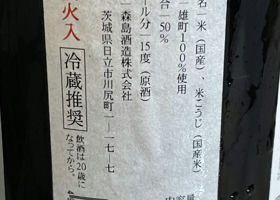 名 米（国産）、米こうじ（国産米）
雄町100％使用
合 50％
ール分 15度（原酒）
森島酒造株式会社
茨城県日立市川尻町一ー一七ー七
火入
冷蔵推奨
飲酒は20歳に
なってから。
内容量